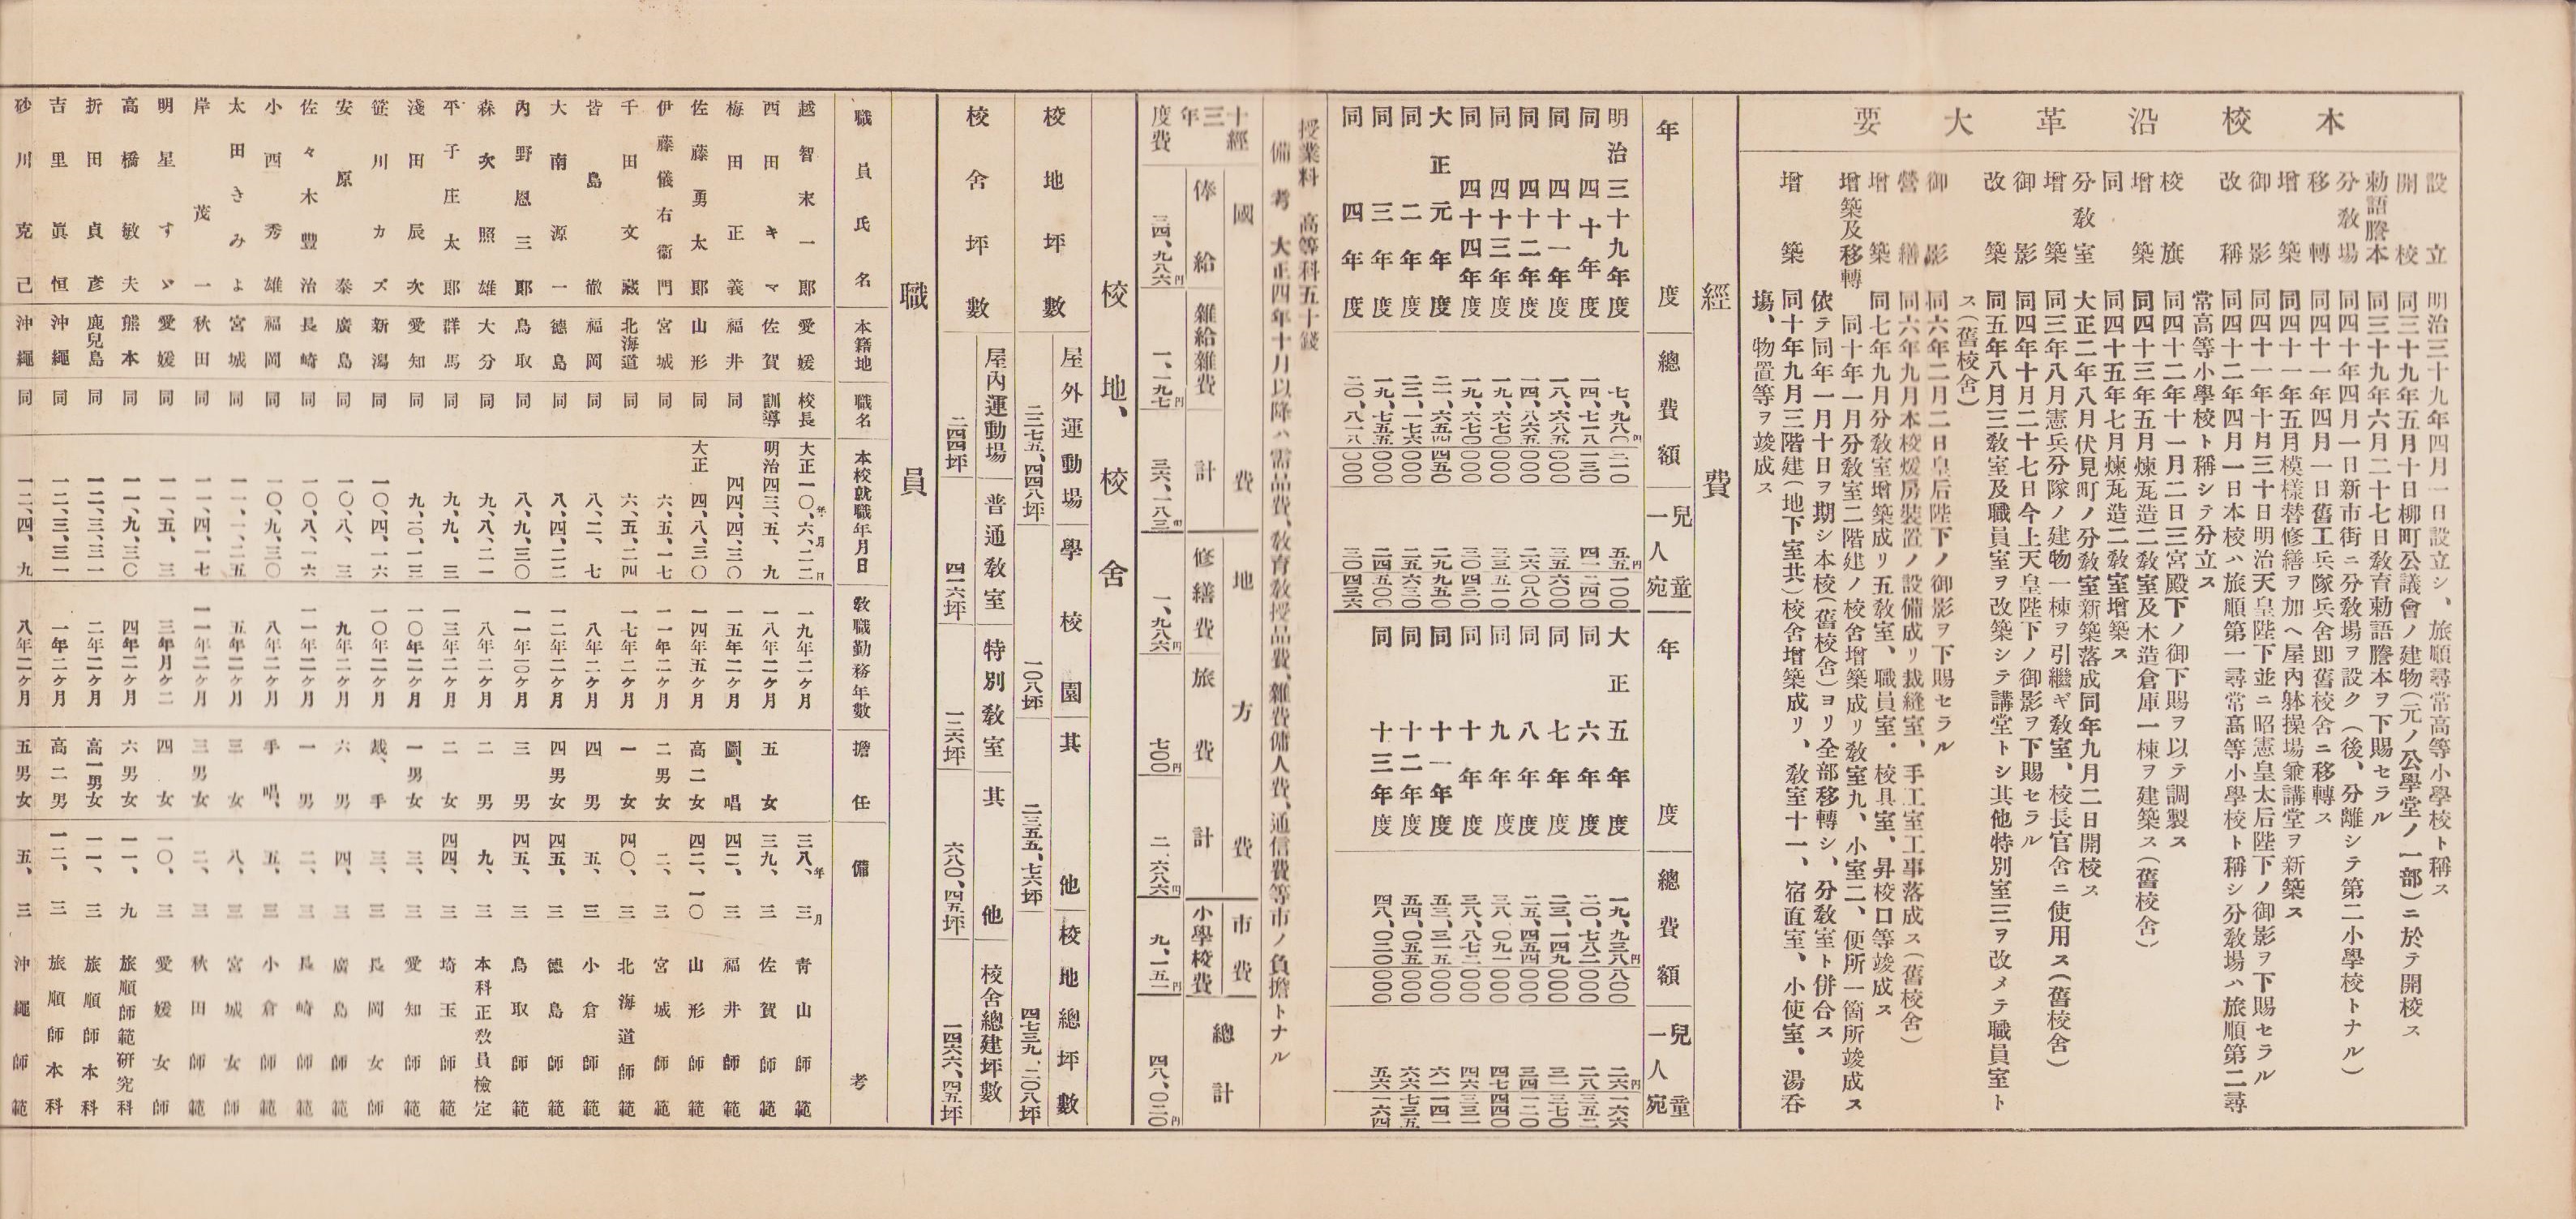 本校沿革大要
設立 明治三十九年四月一日設立シ、旅順尋常高等小學校ト稱ス
開校 同三十九年五月十日柳町公議會ノ建物(元ノ公學堂ノ一部)ニ於テ開校ス
勅語謄本 同三十九年六月二十七日敎育勅語謄本ヲ下賜セラル
分敎場 同四十年四月一日新市街ニ分敎場ヲ設ク(後、分離シテ第二小學校トナル)
移轉 同四十一年四月一日舊工兵隊兵舍卽舊校舍ニ移轉ス
增築 同四十一年五月模樣替修繕ヲ加ヘ屋內躰操場兼講堂ヲ新築ス
御影 同四十一年十月三十日明治天皇陛下並ニ昭憲皇太后陛下ノ御影ヲ下賜セラル
改稱 同四十二年四月一日本校ハ旅順第一尋常高等小學校ト稱シ分敎場ハ旅順第二尋
常高等小學校ト稱シテ分立ス
校旗 同四十二年十一月二日三宮殿下ノ御下賜ヲ以テ調製ス
增築 同四十三年五月煉瓦造二敎室及木造倉庫一棟ヲ建築ス(舊校舍)
同 同四十五年七月煉瓦造二敎室增築ス
分敎室 大正二年八月伏見町ノ分敎室新築落成同年九月二日開校ス
增築 同三年八月憲兵分隊ノ建物一棟ヲ引繼ギ敎室、校長官舍ニ使用ス(舊校舍)
御影 同四年十月二十七日今上天皇陛下ノ御影ヲ下賜セラル
改築 同五年八月三敎室及職員室ヲ改築シテ講堂トシ其他特別室三ヲ改メテ職員室ト
ス(舊校舍)
御影 同六年二月二日皇后陛下ノ御影ヲ下賜セラル
營繕 同六年九月本校煖房裝置ノ設備成リ裁縫室、手工室工事落成ス(舊校舍)
增築 同七年九月分敎室增築成リ五敎室、職員室・校具室、昇校口等竣成ス
增築及移轉 同十年一月分敎室二階建ノ校舍增築成リ敎室九、小室二、便所一箇所竣成ス
依テ同年一月十日ヲ期シ本校(舊校舍)ヨリ全部移轉シ、分敎室ト併合ス
增築 同十年九月三階建(地下室共)校舍增築成リ、敎室十一、宿直室、小使室、湯呑
場、物置等ヲ竣成ス
經費
年度 總費額 兒童一人宛 年度 總費額 兒童一人宛
明治三十九年度 七、九八〇円三一〇 五五円一〇〇 大正五年度 一九、九三八円八〇〇 二六円一六六
同四十年度 一四、七一八 一三〇 四一 二四〇 同六年度 二〇、七八二 〇〇〇 二八 三五二
同四十一年度 一八、六八五 〇〇〇 三五 六〇〇 同七年度 二三、一四九 〇〇〇 三一 三七〇
同四十二年度 一四、八六五 〇〇〇 二六 〇八〇 同八年度 二五、四五四 〇〇〇 三四 一二〇
同四十三年度 一九、六七〇 〇〇〇 三三 五一〇 同九年度 三八、〇九一 〇〇〇 四七 四四〇
同四十四年度 一九、六七〇 〇〇〇 三〇 四三〇 同十年度 三八、八七二 〇〇〇 四六 三三一
大正元年度 二一、六五四 四五〇 二九 九五〇 同十一年度 五三、三一五 〇〇〇 六一 一四一
同二年度 二二、一七六 〇〇〇 二五 六三〇 同十二年度 五四、〇五五 〇〇〇 六六 七三五
同三年度 一九、七五五 〇〇〇 二四 五〇〇 同十三年度 四八、〇二〇 〇〇〇 五六 一六四
同四年度 二〇、八一八 〇〇〇 三〇 四三六
授業料 高等科五十錢
備考 大正四年十月以降ハ需品費、敎育敎授品費、雜費傭人費、通信費等市ノ負擔トナル
十三年度經費
國費 地方費 市費 總計
俸給 雜給雜費 計 修繕費 旅費 計 小學校費
三四、九八六円 一、一九七円 三六、一八三円 一、九八六円 七〇〇円 二、六八六円 九、一五一円 四八、〇二〇円
校地、校舍
校地坪數 屋外運動場 學校園 其他 校地總坪數
二二七五、四四八坪 一〇八坪 二三五五、七六坪 四七三九、二〇八坪
校舍坪數 屋內運動場 普通敎室 特別敎室 其他 校舍總建坪數
二四四坪 四一六坪 一二六坪 六八〇、四五坪 一四六六、四五坪
職員
職員氏名 本籍地 職名 本校就職年月日 敎職勤務年數 擔任 備考
越智末一郞 愛媛 校長 大正一〇、六、二二 一九年二ケ月 三八、三 靑山師範
西田キマ 佐賀 訓導 明治四三、五、九 一八年二ケ月 五女 三九、三 佐賀師範
梅田正義 福井 同 四四、四、三〇 一五年二ケ月 圖、唱 四二、三 福井師範
佐藤勇太郞 山形 同 大正四、八、三〇 一四年五ケ月 高二女 四二、一〇 山形師範
伊藤儀右衞門 宮城 同 六、五、一七 一一年二ケ月 二男女 二、三 宮城師範
千田文藏 北海道 同 六、五、二四 一七年二ケ月 一女 四〇、三 北海道師範
皆島徹 福岡 同 八、二、七 八年二ケ月 四男 五、三 小倉師範
大南源一 德島 同 八、四、二二 一二年二ケ月 四男女 四五、三 德島師範
內野恩三郞 鳥取 同 八、九、三〇 一一年一〇ケ月 三男 四五、三 鳥取師範
森次照雄 大分 同 九、八、二一 八年二ケ月 二男 九、三 本科正敎員檢定
平子庄太郞 群馬 同 九、九、三 一三年二ケ月 二女 四四、三 埼玉師範
淺田辰次 愛知 同 九、一〇、一三 一〇年二ケ月 一男女 三、三 愛知師範
笹川カズ 新潟 同 一〇、四、一六 一〇年二ケ月 裁、手 三、三 長岡女師
安原泰 廣島 同 一〇、八、三 九年二ケ月 六男 四、三 廣島師範
佐々木豐治 長崎 同 一〇、八、一六 一一年二ケ月 一男 二、三 長崎師範
小西秀雄 福岡 同 一〇、九、三〇 八年二ケ月 手唱、 五、三 小倉師範
太田きみよ 宮城 同 一一、一、二五 五年二ケ月 三女 八、三 宮城女師
岸茂一 秋田 同 一一、四、一七 一一年二ケ月 三男女 二、三 秋田師範
明星すゞ 愛媛 同 一一、五、三 三年月ケ二 四女 一〇、三 愛媛女師
高橋敏夫 熊本 同 一一、九、三〇 四年二ケ月 六男女 一一、九 旅順師範硏究科
折田貞彥 鹿兒島 同 一二、三、三一 二年二ケ月 高一男女 一一、三 旅順師本科
吉里眞恒 沖繩 同 一二、三、三一 一年二ケ月 高二男 一二、三 旅順師本科
砂川克己 沖繩 同 一二、四、九 八年二ケ月 五男女 五、三 沖繩師範